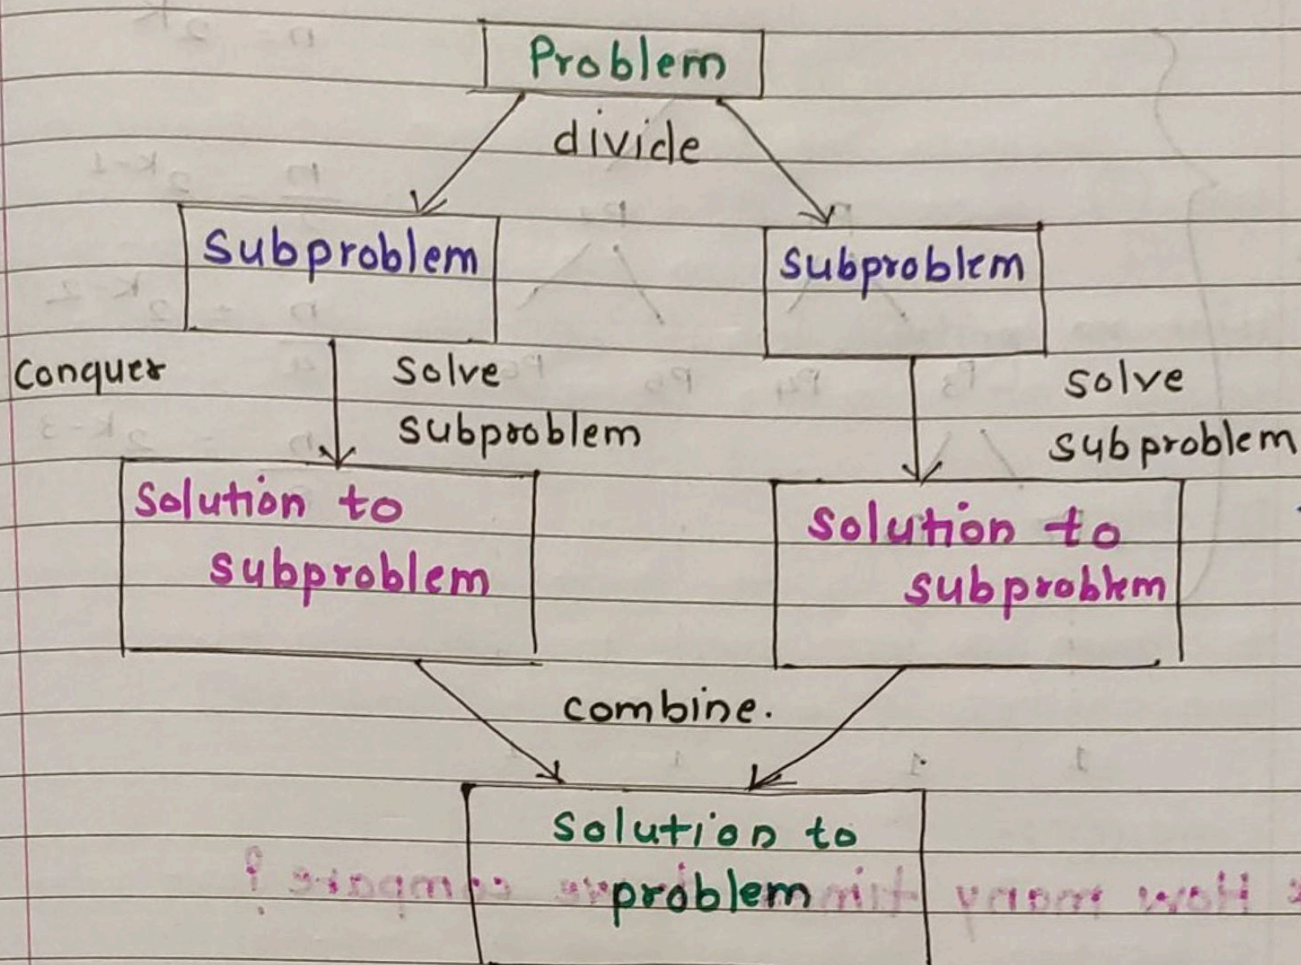 Problem
divide
Subproblem
Subproblem
Conquer
Solve
subproblem
solve
subproblem
Solution to
subproblem
Solution to
subproblem
combine.
Solution to
problem
How many time have compare ?
n = 2^k